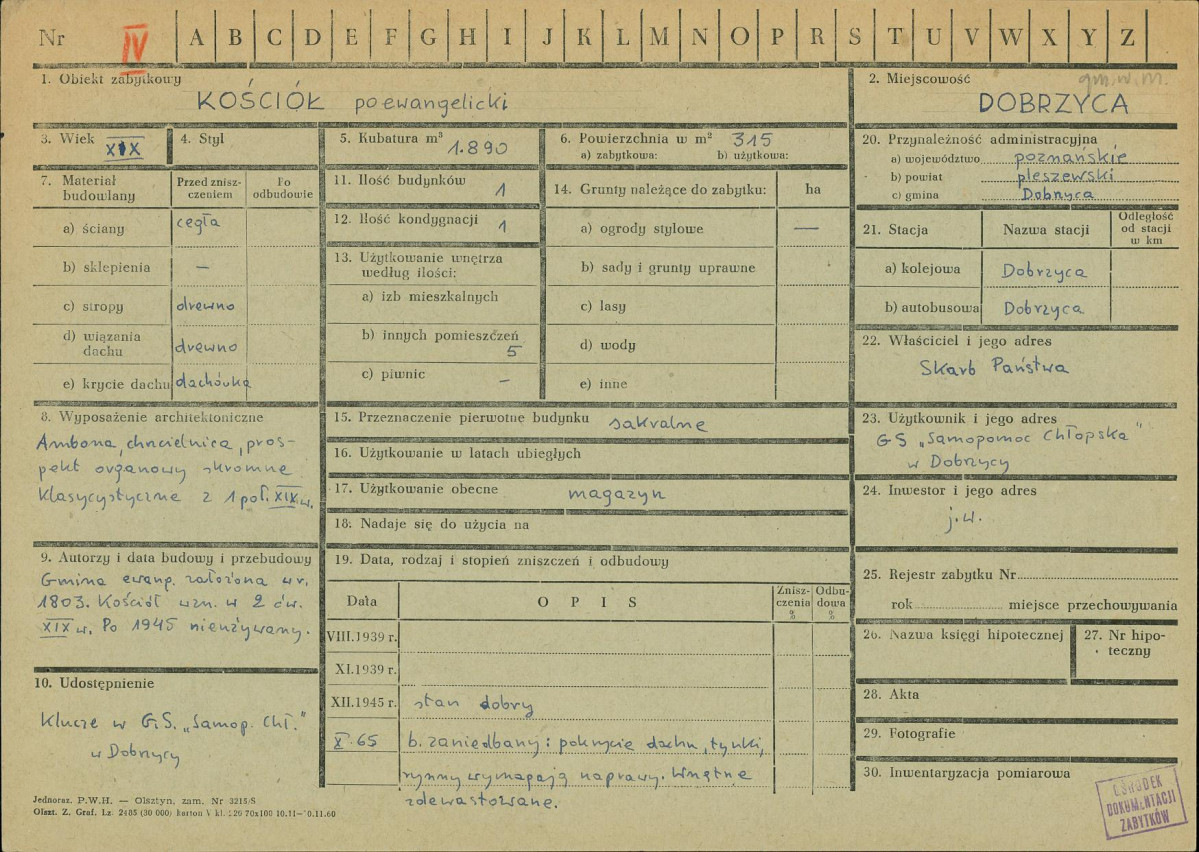 Nr IV A B C D E F G H I J K L M N O P R S T U V W X Y Z
1. Obiekt zabytkowy
KOŚCIÓŁ poewangelicki
2. Miejscowość gm.w.m.
DOBRZYCA
3. Wiek XIX
4. Styl
5. Kubatura m³ 1.890
6. Powierzchnia w m² 315
a) zabytkowa: b) użytkowa:
20. Przynależność administracyjna
a) województwo poznańskie
b) powiat pleszewski
c) gmina Dobrzyca
7. Materiał budowlany
Przed zniszczeniem
Po odbudowie
a) ściany cegła
b) sklepienia —
c) stropy drewno
d) wiązania dachu drewno
e) krycie dachu dachówka
11. Ilość budynków 1
12. Ilość kondygnacji 1
13. Użytkowanie wnętrza
według ilości:
a) izb mieszkalnych
b) innych pomieszczeń
5
c) piwnic —
14. Grunty należące do zabytku: ha
a) ogrody stylowe —
b) sady i grunty uprawne
c) lasy
d) wody
e) inne
21. Stacja Nazwa stacji Odległość od stacji w km
a) kolejowa Dobrzyca
b) autobusowa Dobrzyca
22. Właściciel i jego adres
Skarb Państwa
8. Wyposażenie architektoniczne
Ambona, chrcielnica, pros-
pekt organowy skromne
klasycystyczne z 1 poł. XIX w.
15. Przeznaczenie pierwotne budynku sakralne
16. Użytkowanie w latach ubiegłych
17. Użytkowanie obecne magazyn
18. Nadaje się do użycia na
23. Użytkownik i jego adres
GS „Samopomoc Chłopska"
w Dobrzycy
24. Inwestor i jego adres
j.w.
9. Autorzy i data budowy i przebudowy
Gmina ewang. założona w r.
1803. Kościół wzn. w 2 ćw.
XIX w. Po 1945 nieużywany.
10. Udostępnienie
Klucze w G.S. „Samop. Chł."
w Dobrzycy
19. Data, rodzaj i stopień zniszczeń i odbudowy
Data OPIS Zniszczenia % Odbudowa %
VIII.1939 r.
XI.1939 r.
XII.1945 r. stan dobry
X.65 b. zaniedbany: pokrycie dachu, tynki,
rynny wymagają naprawy. Wnętrze
zdewastowane.
25. Rejestr zabytku Nr
rok miejsce przechowywania
26. Nazwa księgi hipotecznej
27. Nr hipo-
teczny
28. Akta
29. Fotografie
30. Inwentaryzacja pomiarowa
OŚRODEK
DOKUMENTACJI
ZABYTKÓW
Jednoraz. P.W.H. — Olsztyn, zam. Nr 3215/S
Olszt. Z. Graf. Lz. 2485 (30 000) karton V kl. 220 70x100 10.11—10.11.60